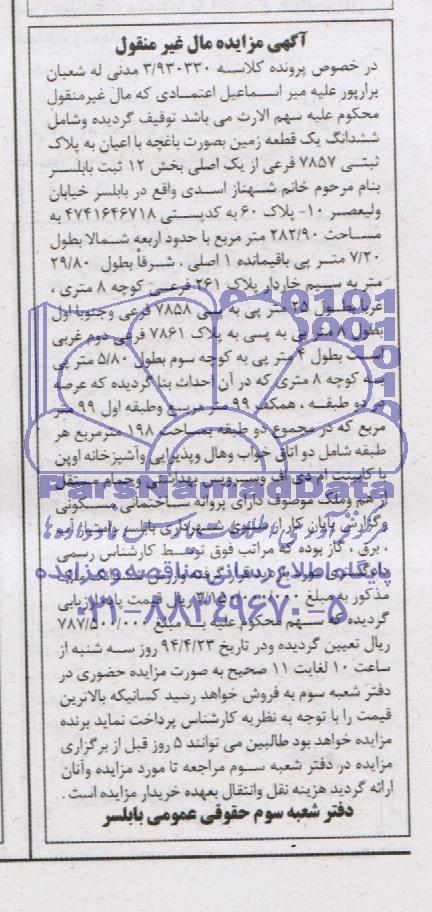 آگهی مزایده مال غیر منقول
در خصوص پرونده کلاسه ۳/۹۳۰۳۳۰ مدنی له شعبان
برارپور علیه میر اسماعیل اعتمادی که مال غیرمنقول
محکوم علیه سهم الارث می باشد توقیف گردیده وشامل
ششدانگ یک قطعه زمین بصورت باغچه با اعیان به پلاک
ثبتی ۷۸۵۷ فرعی از یک اصلی بخش ۱۲ ثبت بابلسر
بنام مرحوم خانم شهناز اسدی واقع در بابلسر خیابان
ولیعصر ۱۰- پلاک ۶۰ به کدپستی ۴۷۴۱۶۴۶۷۱۸ به
مساحت ۲۸۲/۹۰ متر مربع با حدود اربعه شمالا بطول
۷/۲۰ متر پی باقیمانده ۱ اصلی ، شرقاً بطول ۲۹/۸۰
متر به سیم خاردار پلاک ۲۶۱ فرعی کوچه ۸ متری ،
غربا بطول ۲۵ متر پی به پی ۷۸۵۸ فرعی وجنوبا اول
بطول ۸ متر پی به پسی به پلاک ۷۸۶۱ فرعی دوم غربی
است بطول ۴ متر پی به کوچه سوم بطول ۵/۸۰ متر پی
به کوچه ۸ متری که در آن احداث بنا گردیده که عرصه
در دو طبقه ، همکف ۹۹ متر مربع وطبقه اول ۹۹ متر
مربع که در مجموع دو طبقه بمساحت ۱۹۸ مترمربع هر
طبقه شامل دو اتاق خواب وهال وپذیرایی وآشپزخانه اوپن
با کابینت ام دی اف وسرویس بهداشتی وحمام مستقل
از هم وملک موصوف دارای پروانه ساختمانی مسکونی
وگزارش پایان کار از سوی شهرداری بابلسر وامتیاز آب
، برق ، گاز بوده که مراتب فوق توسط کارشناس رسمی
دادگستری مورد بازدید قرار گرفته وارزش ملک
مذکور به مبلغ ۳/۱۵۰/۰۰۰/۰۰۰ ریال قیمت پایه ارزیابی
گردیده که سهم محکوم علیه به مبلغ ۷۸۷/۵۰۰/۰۰۰
ریال تعیین گردیده ودر تاریخ ۹۴/۴/۲۳ روز سه شنبه از
ساعت ۱۰ لغایت ۱۱ صحیح به صورت مزایده حضوری در
دفتر شعبه سوم به فروش خواهد رسید کسانیکه بالاترین
قیمت را با توجه به نظریه کارشناس پرداخت نماید برنده
مزایده خواهد بود طالبین می توانند ۵ روز قبل از برگزاری
مزایده در دفتر شعبه سوم مراجعه تا مورد مزایده وآنان
ارائه گردید هزینه نقل وانتقال بعهده خریدار مزایده است .
دفتر شعبه سوم حقوقی عمومی بابلسر
ParsNamadData
پایگاه اطلاع رسانی مناقصه ومزایده
۰۲۱-۸۸۳۴۹۶۷۰-۵